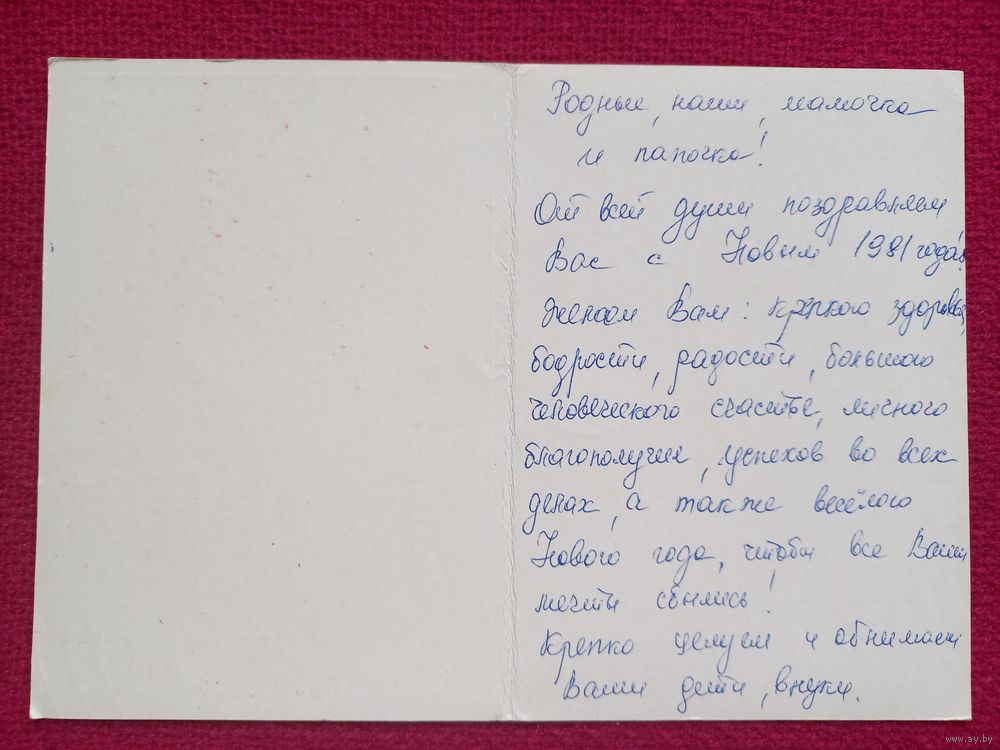 Родные, наши, мамочка
и папочка!
От всей души поздравляем
Вас с Новым 1981 годом!
Желаем Вам: крепкого здоровья,
бодрости, радости, большого
человеческого счастье, личного
благополучие, успехов во всех
делах, а также весёлого
Нового года, чтобы все Ваши
мечты сбылись!
Крепко целуем и обнимаем
Ваши дети, внуки.
www.ay.by